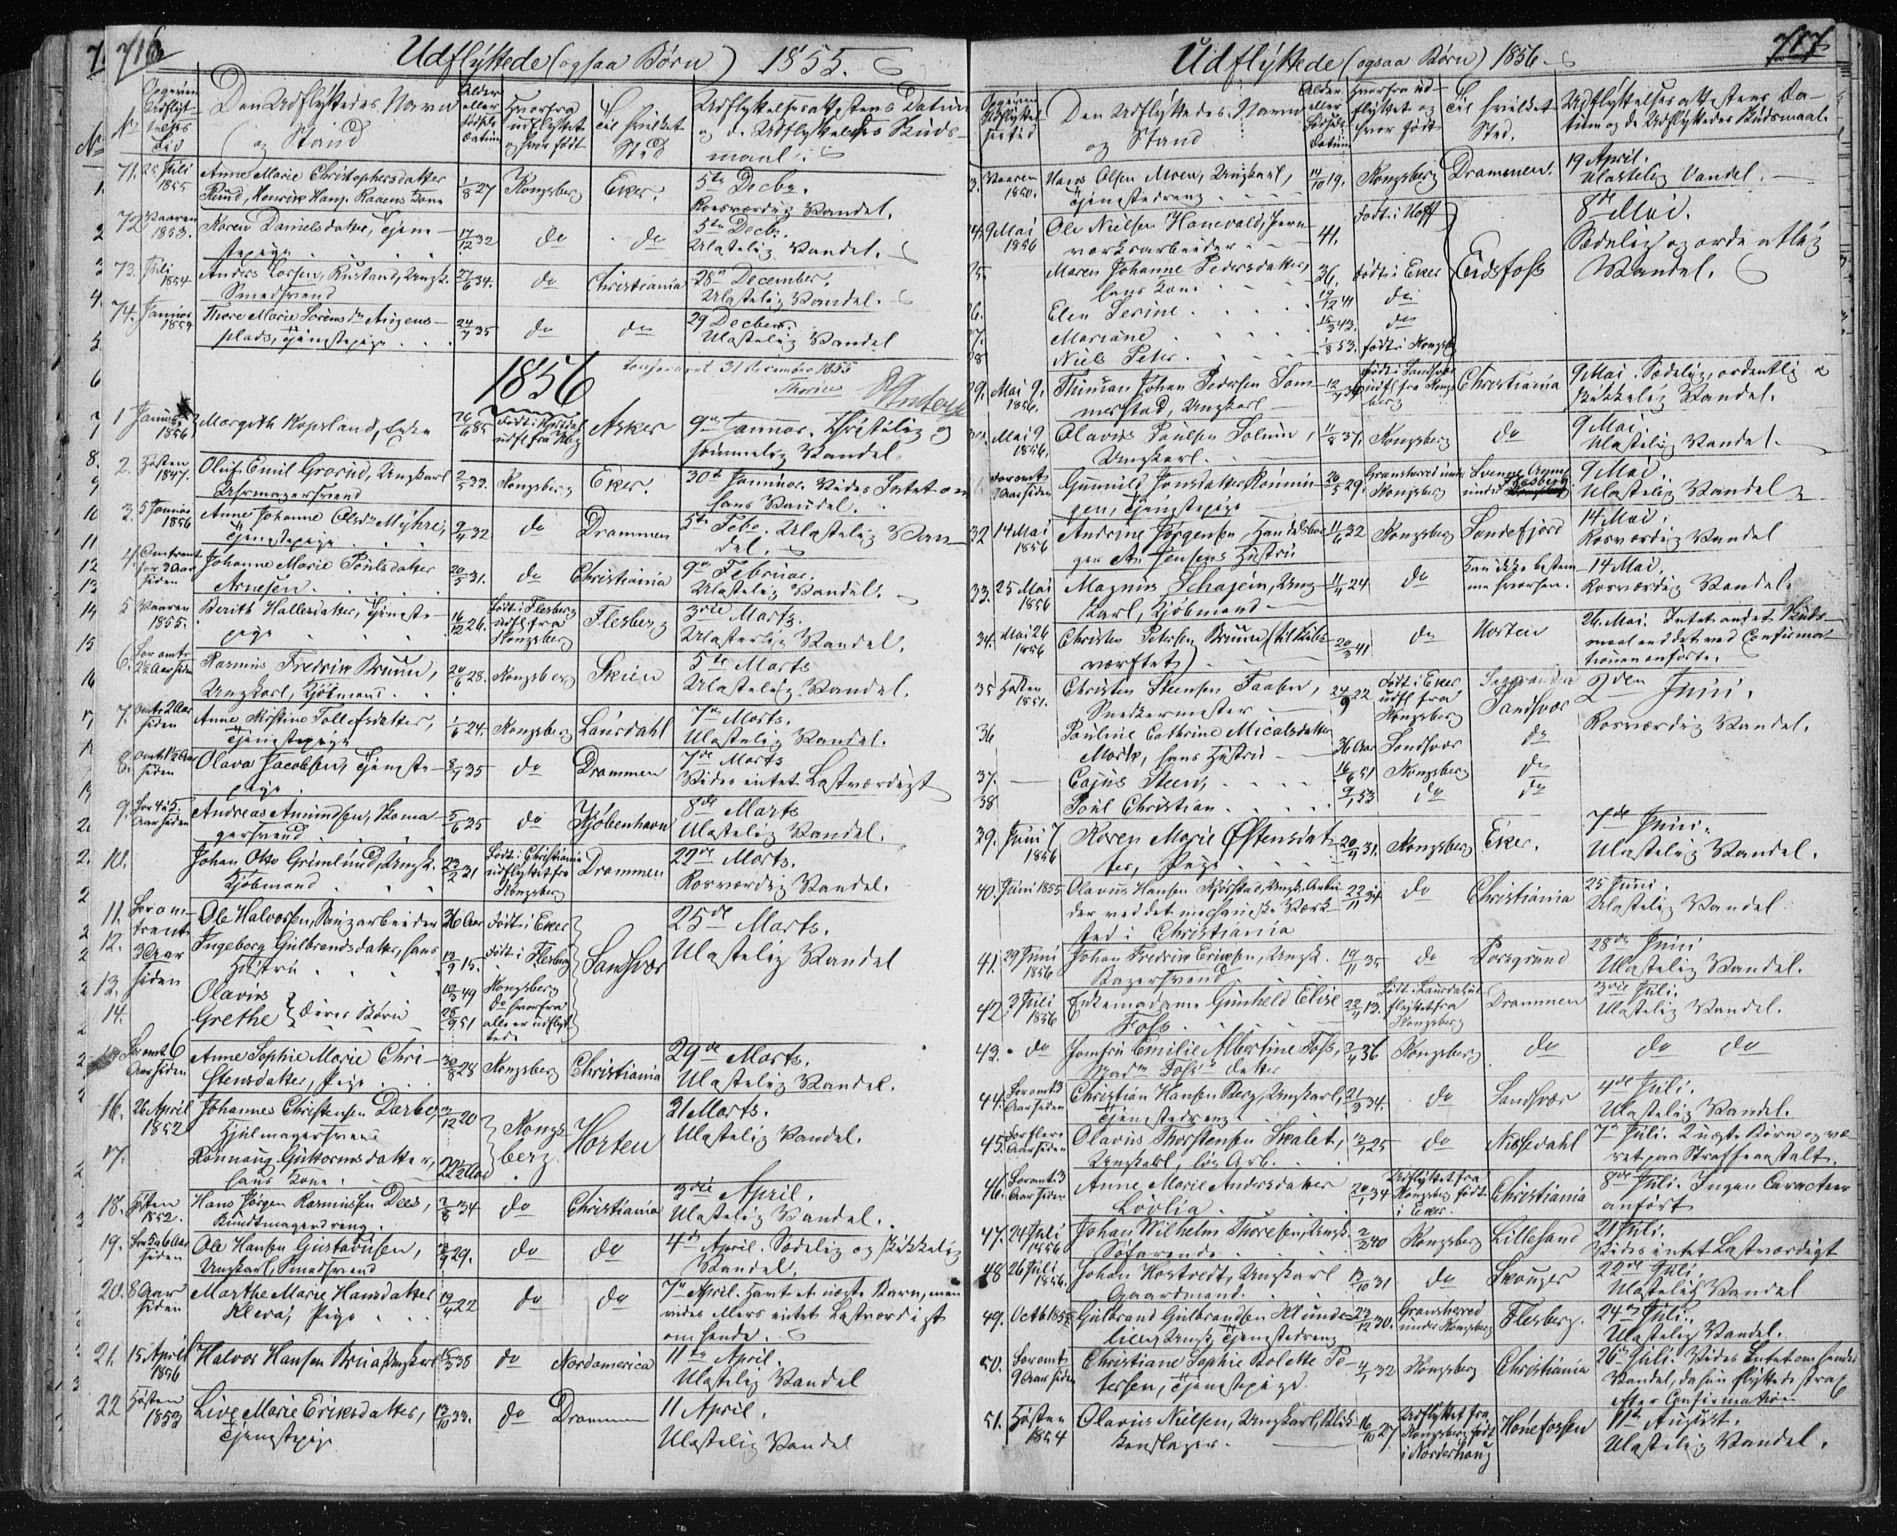 716
Udflyttede (ogsaa Børn) 1855.
No
Den Udflyttedes Navn og Stand
Alder eller Fødsels Datum
Hvorfra udflyttet og hvor født
Til hvilket Sted
Udflyttelsesattestens Datum og de Udflyttedes Skudsmaal
71. 25 Juli 1855 Anne Marie Christophersdatter 1/8 27 Kongsberg Eker. 5te Decbr.
Rosværdig Vandel.
72 Vaaren 1853. Karen Danielsdatter, Tjenestepige 17/12 32 do do 5te Decbr.
Ulastelig Vandel.
73. Juli 1854 Anders Larsen Rustand, Ungk. Smedsvend 27/6 34. do Christiania 28de December.
Ulastelig Vandel.
74. Januar 1854 Thore Marie Sørensdr 24/7 35 do do 29 Decber.
plads, Tjenestepige Ulastelig Vandel
31 December 1855
1856
1 Januar 1856 Margith Kopsland, Enke 26/6 85 Asker 9de Januar. Christelig og
sømmelig Vandel.
2. Høsten 1847. Oluf Emil Grorud, Ungkarl 2/5 33. Kongsberg Eker. 30te Januar. Vides Intet om
Uhrmagersvend hans Vandel.
3. 5 Januar 1856 Anne Johanne Olsdr Myhre, 9/4 32 do Drammen 5te Febr. Ulastelig Van-
Tjenestepige del.
4. Omtrent for 3 Aar siden Johanne Marie Poulsdatter 20/5 31. do Christiania 9de Februar.
Arnesen Ulastelig Vandel.
5 Vaaren 1855. Berith Hallesdatter, Tjeneste- 16/12 26. Født i Flesberg udfl fra Kongsberg Flesberg 3die Marts.
pige Ulastelig Vandel.
6. For omtr 2½ Aar siden Rasmus Fredrik Bruun, 20/6 28. Kongsberg Skien 5te Marts
Ungkarl, Kjøbmand Ulastelig Vandel.
7. Omtr 2 Aar siden Anne Kirstine Tollefsdatter, 1/6 24. Kongsberg Laurdahl 7de Marts.
Tjenestepige Ulastelig Vandel.
8. Omtr 1½ Aar siden Olava Jacobsen, Tjeneste- 8/7 35 do Drammen 7de Marts
pige Vides intet Lastværdigt
9. For 4 à 5 Aar siden Andreas Amundsen, 5/6 25 do Kjøbenhavn 8de Marts
gersvend Ulastelig Vandel.
10. Johan Otto Grimlund, Ungk. 23/2 21 Født i Christiania udflyttet fra Kongsberg Drammen 29de Marts.
Kjøbmand Rosværdig Vandel.
11. For om- Ole Halvorsen, 36 Aar Født i Eker 25de Marts.
12. trent 3 Aar siden Ingeborg Gulbrandsdatter, hans Hustru 13/9 15. Født i Flesberg Sandsvær Ulastelig Vandel
13. Olavus 10/3 49 Kongsberg
14. Grethe } deres Børn 28/9 51 do hvorfra alle er udflyttede
For omt 6 Aar siden Anne Sophie Marie Chri- 30/8 28 Kongsberg Christiania 29de Marts.
stensdatter, Pige Ulastelig Vandel.
16. 26 April 1852 Johannes Christensen Darbo, 3/12 20 Kongsberg Horten 31 Marts.
Hjulmagersvend Ulastelig Vandel.
17. Rønnaug Guttormsdatter, 22½ Aar
hans Kone
18. Høsten 1852. Hans Jørgen Rasmussen Dees, 2/8 34 do Christiania 3die April.
Bundtmagerdreng Ulastelig Vandel.
19. For 5 à 6 Aar siden Ole Hansen Gustavusen, 29. do do 4de April. Sædelig og skikkelig
Ungkarl, Smedsvend Vandel.
20. 8 Aar siden Marthe Marie Hansdatter 19/4 22 do do 7de April. Havt et uægte Barn, men
Pige vides ellers intet Lastværdigt
om hende.
21. 15 April 1856 Halvor Hansen Brua Ungkarl 15/3 38 do Nordamerica 11te April.
Ulastelig Vandel
22 Høsten 1853 Live Marie Eriksdatter, 13/10 33. do Drammen 11 April.
Tjenestepige Ulastelig Vandel
717
Udflyttede (ogsaa Børn) 1856.
Den Udflyttedes Navn og Stand
Alder eller Fødsels Datum
Hvorfra udflyttet og hvor født
Til hvilket Sted.
Udflyttelsesattestens Datum og de Udflyttedes Skudsmaal.
Vaaren 1850. Hans Olsen Moen, Ungkarl, 14/10 19. Kongsberg Drammen. 19 April.
Tjenestedreng Ulastelig Vandel.
24. 9 Mai 1856 Ole Nielsen Hanevold, Jern- 41. Født i Hoff 8de Mai.
værksarbeider Eidsfoss Sædelig og ordentlig
25. Maren Johanne Pedersdatter, 36. Født i Eker Vandel.
hans Kone
26. Elen Serine 41 do
27. Mariane 43. do
28 Niels Peter 1/8 53. Født i Kongsbg
29. Mai 9. 1856. Thimian Johan Pedersen Som- 12/7 Født i Sandsvær udfl fra Kongsberg Christiania 9 Mai. Sædelig, ordentlig &
merstad, Ungkarl skikkelig Vandel.
Mai 9 1856. Olavus Paulsen Solum, 11/8 37. Kongsberg do 9 Mai
Ungkarl. Ulastelig Vandel.
For omtr 9 Aar siden Gunnild Jonsdatter 26/5 29. Granshered under Kongsberg Flesberg 9 Mai.
gen, Tjenestepige Ulastelig Vandel
32 14 Mai 1856 Andrine Jørgensen, Handelsbor- 11/6 32 Kongsberg Sandefjord 14 Mai.
ger A. Jensens Hustru Rosværdig Vandel
33. 25 Mai 1856 Magnus Schagein, Ung- 11/4 24 do Kan ikke bestemme hvorhen. 14 Mai.
karl, Kjøbmand Rosværdig Vandel.
34. Mai 26 1856 Christen Petersen Bruun (til Skibs- 20/3 41 do Horten 26 Mai. Intet andet Skuds-
værftet) maal end det ved Confirma-
tionen anførte.
35 Høsten 1851. Christen Steensen Faaben, 24/9 22 Født i Eker udfl fra Kongsberg Sandsvær 2den Juni.
Snedkermester Rosværdig Vandel.
36 Pauline Cathrine Micalsdatter 36 Aar Sandsvær do
Mork, hans Hustru
37. Cajus Steen, 16/6 51 Kongsberg do
38 Poul Christian 9/1 53 do do
39. Juni 7 1856 Karen Marie Øftensdat- 20/4 31. Kongsberg Eker. 7de Juni.
ter, Pige Ulastelig Vandel.
40. Juni 1855 Olavus Hansen Kjørstad, Ungk. Arbei- 22/11 34 do Christiania 25 Juni.
der ved det mechaniske Værk- Ulastelig Vandel
sted i Christiania
41. 29 Juni 1856 Johan Fredrik Eriksen, Ungk. 19/11 35 do Porsgrund 28de Juni
Bagersvend Ulastelig Vandel.
42 3 Juli 1856 Enkemadame Gunhild Elise 22/4 13. Født i Laurdahl udflyttet fra Kongsberg Drammen 3die Juli.
Foss Ulastelig Vandel.
43. do Jomfru Emilie Albertine Foss, 2/4 36 Kongsberg do do do
Madm Foss's datter
44. For omt 3 Aar siden Christian Hansen Berg, Ungkarl, 21/9 34. do Sandsvær 4de Juli.
Tjenestedreng Ulastelig Vandel.
45. For flere Aar siden Olavus Thorstensen Skalet, 25 do Nissedahl 7de Juli. 2 uægte Børn og væ-
Ungkarl, løs Arb. ret paa Strafanstalt.
46. For omt 3 Aar siden Anne Marie Andersdatter 20/1 34 Udflyttet fra Kongsberg født i Eker. Christiania 8de Juli. Ingen Caracteer
Løvlia anført
47. 24 Juli 1856 Johan Wilhelm Thoresen, Ungk. 2/3 40 Kongsberg Lillesand 21 Juli.
Søfarende Vides intet Lastværdigt
48 26 Juli 1856. Johan Hostvedt, Ungkarl 13/10 31 do Skouger 22de Juli.
Gaardmand. Ulastelig Vandel
49. Octb 1855 Gulbrand Gulbrandsen Klunder- 23/12 30. Granshered under Kongsberg Flesberg. 24de Juli.
lien Ungk Tjenestedreng Ulastelig Vandel.
50. For omt 9 Aar siden Christiane Sophie Bolette Pe- 4/1 32 Kongsberg Christiania 26de Juli. Vides Intet om hendes
tersen, Tjenestepige. Vandel, da hun flyttede strax
efter Confirmation
51. Høsten 1854 Olavus Nielsen, Ungkarl, Blik- 16/10 27 Udflyttet fra Kongsberg født i Norderhoug Hønefossen 11te August.
kenslager. Ulastelig Vandel.